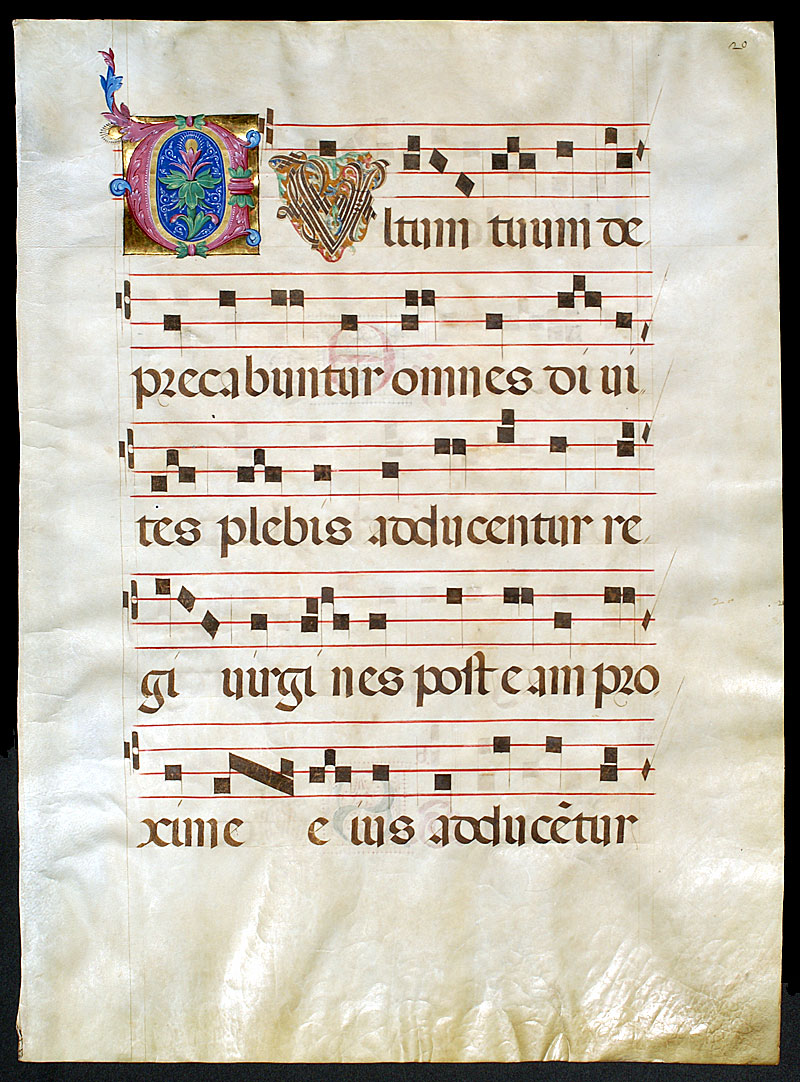 20
VVltum tuum de
precabuntur omnes diui
tes plebis adducentur re
gi uirgines post eam pro
xime eius adducẽtur